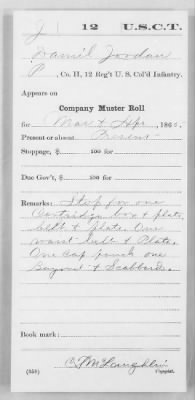 J | 12 | U.S.C.T.
Daniel Jordan
P, Co. H, 12 Reg't U. S. Col'd Infantry.
Appears on
Company Muster Roll
for Mar & Apr, 1865.
Present or absent Present
Stoppage, $ 100 for
Due Gov't, $ 100 for
Remarks: Stop for one
Cartridge box & plate,
belt & plate. One
waist belt & Plate.
One Cap pouch one
Bayonet & Scabbard.
Book mark:
C. F. McLaughlin
(358) Copyist.